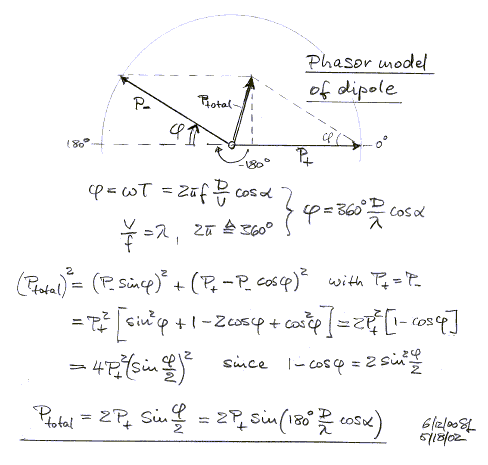 Phasor model
of dipole
P₋
P_total
φ
φ
180°
-180°
P₊
0°
φ = ωT = 2πf D/v cosα
v/f = λ, 2π ≙ 360° } φ = 360° D/λ cosα
(P_total)² = (P₋ sinφ)² + (P₊ - P₋ cosφ)² with P₊ = P₋
= P₊² [sin²φ + 1 - 2cosφ + cos²φ] = 2P₊² [1 - cosφ]
= 4P₊² (sin φ/2)² since 1 - cosφ = 2 sin² φ/2
P_total = 2P₊ sin φ/2 = 2P₊ sin(180° D/λ cosα)
6/12/00 SL
5/18/02